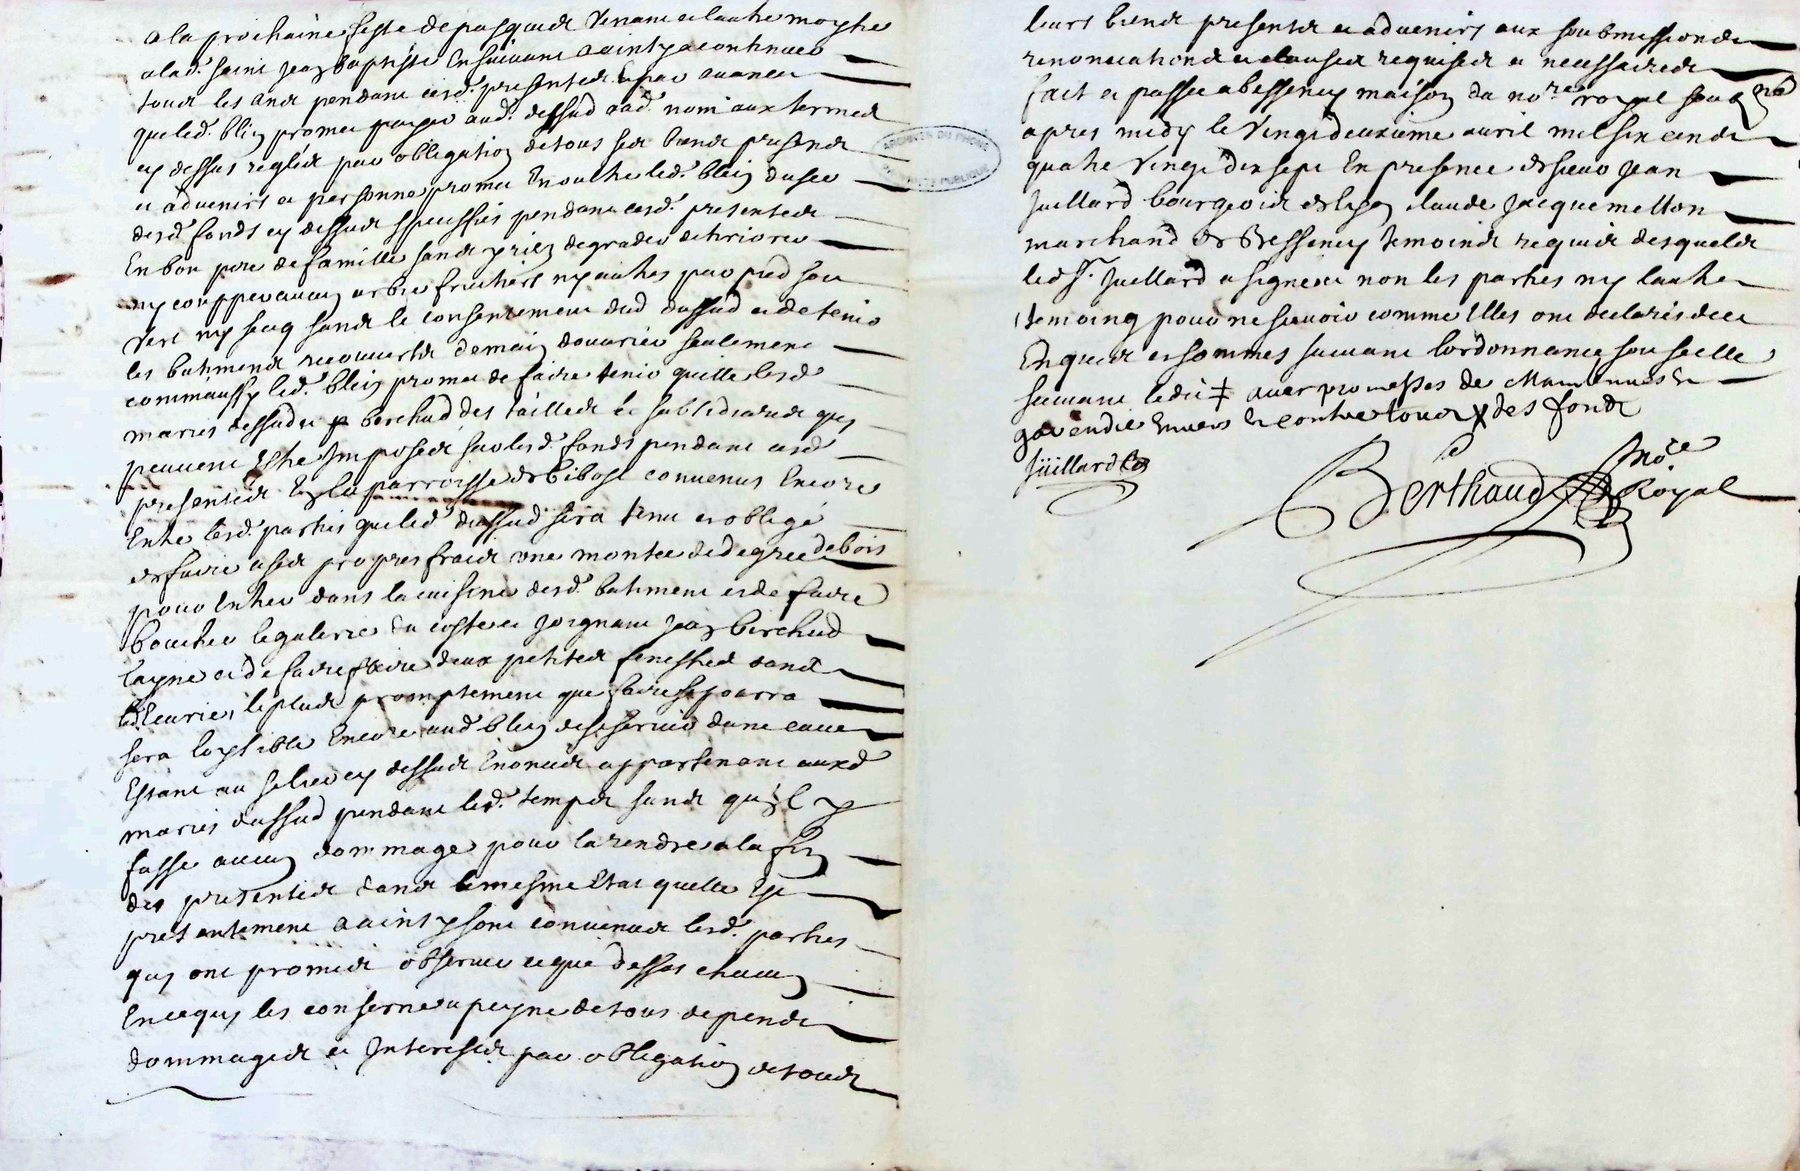 a la prochaine feste de pasques venant et lautre moytie
a lad. saint Jean baptiste Ensuivant a ainsy a continuer
tous les ans pendant cesd. presentes Et par avance
que led. blein promet payer aud. dussud aud. nom aux termes
cy dessus reglés par obligation de tous ses biens presents
et advenirs et personne promet En outre led. blein duser
desd. fonds cy dessus speciffiés pendant cesd. presentes
En bon pere de famille sans y rien degrader deteriorer
ny coupper aucun arbre fruitiers ny autres par pied soit
vert ny secq sans le consentement dud dussud et de tenir
les batiments recouverts de main douvrier seulement
comm aussy led. blein promet de faire tenir quitte lesd.
mariés dussud et berchud des tailles et subsides quy
peuvent Estre Imposés sur lesd. fonds pendant cesd.
presentes En la parroisse de bibost convenus Encore
Entre lesd. parties que led dussud sera tenu et obligé
de faire a ses propres frais une montee de degrés de bois
pour Entrer dans la cuisine desd. batiment et de faire
boucher le galerie du costé et joignant Jean berchud
layné et de faire faire deux petites fenestres dans
led. Ecurie, le plus promptement que faire se pourra
sera loysible Encore aud blein de se servir dune cave
Estant au solier cy dessus Enoncés appartenant auxd
mariés dussud pendant led. temps sans quil y
fasse aucun dommage pour la rendre a la fin
des presentes dans le mesme Etat quelle Est
presentement a ainsy sont convenus lesd. parties
quy ont promis observer ce que dessus chacun
En ce quy les conserne a peyne de tous depends
dommages et Interests par obligation de tous
leurs biens presents et advenirs aux soubmissions
renonciations et clauses requises et necessaires
fait et passé a bessenay maison du no.re royal soubz.né
apres midy le vingt deuxieme avril mil six cents
quatre vingt dix sept En presence de sieur Jean
Juillard bourgeois de lyon claude Jacquemetton
marchand de Bessenay temoins requis desquels
led sr. Juillard a signé et non les parties ny lautre
temoing pour ne scavoir comme Illes ont declarés de ce
Enquis et sommés suivant lordonnance soit scelle
suivant ledit ‡ avec promesses de Maintenues Et
garendie Envers Et contre tous X des fonds
Jüillard
Berthaud no.re Royal